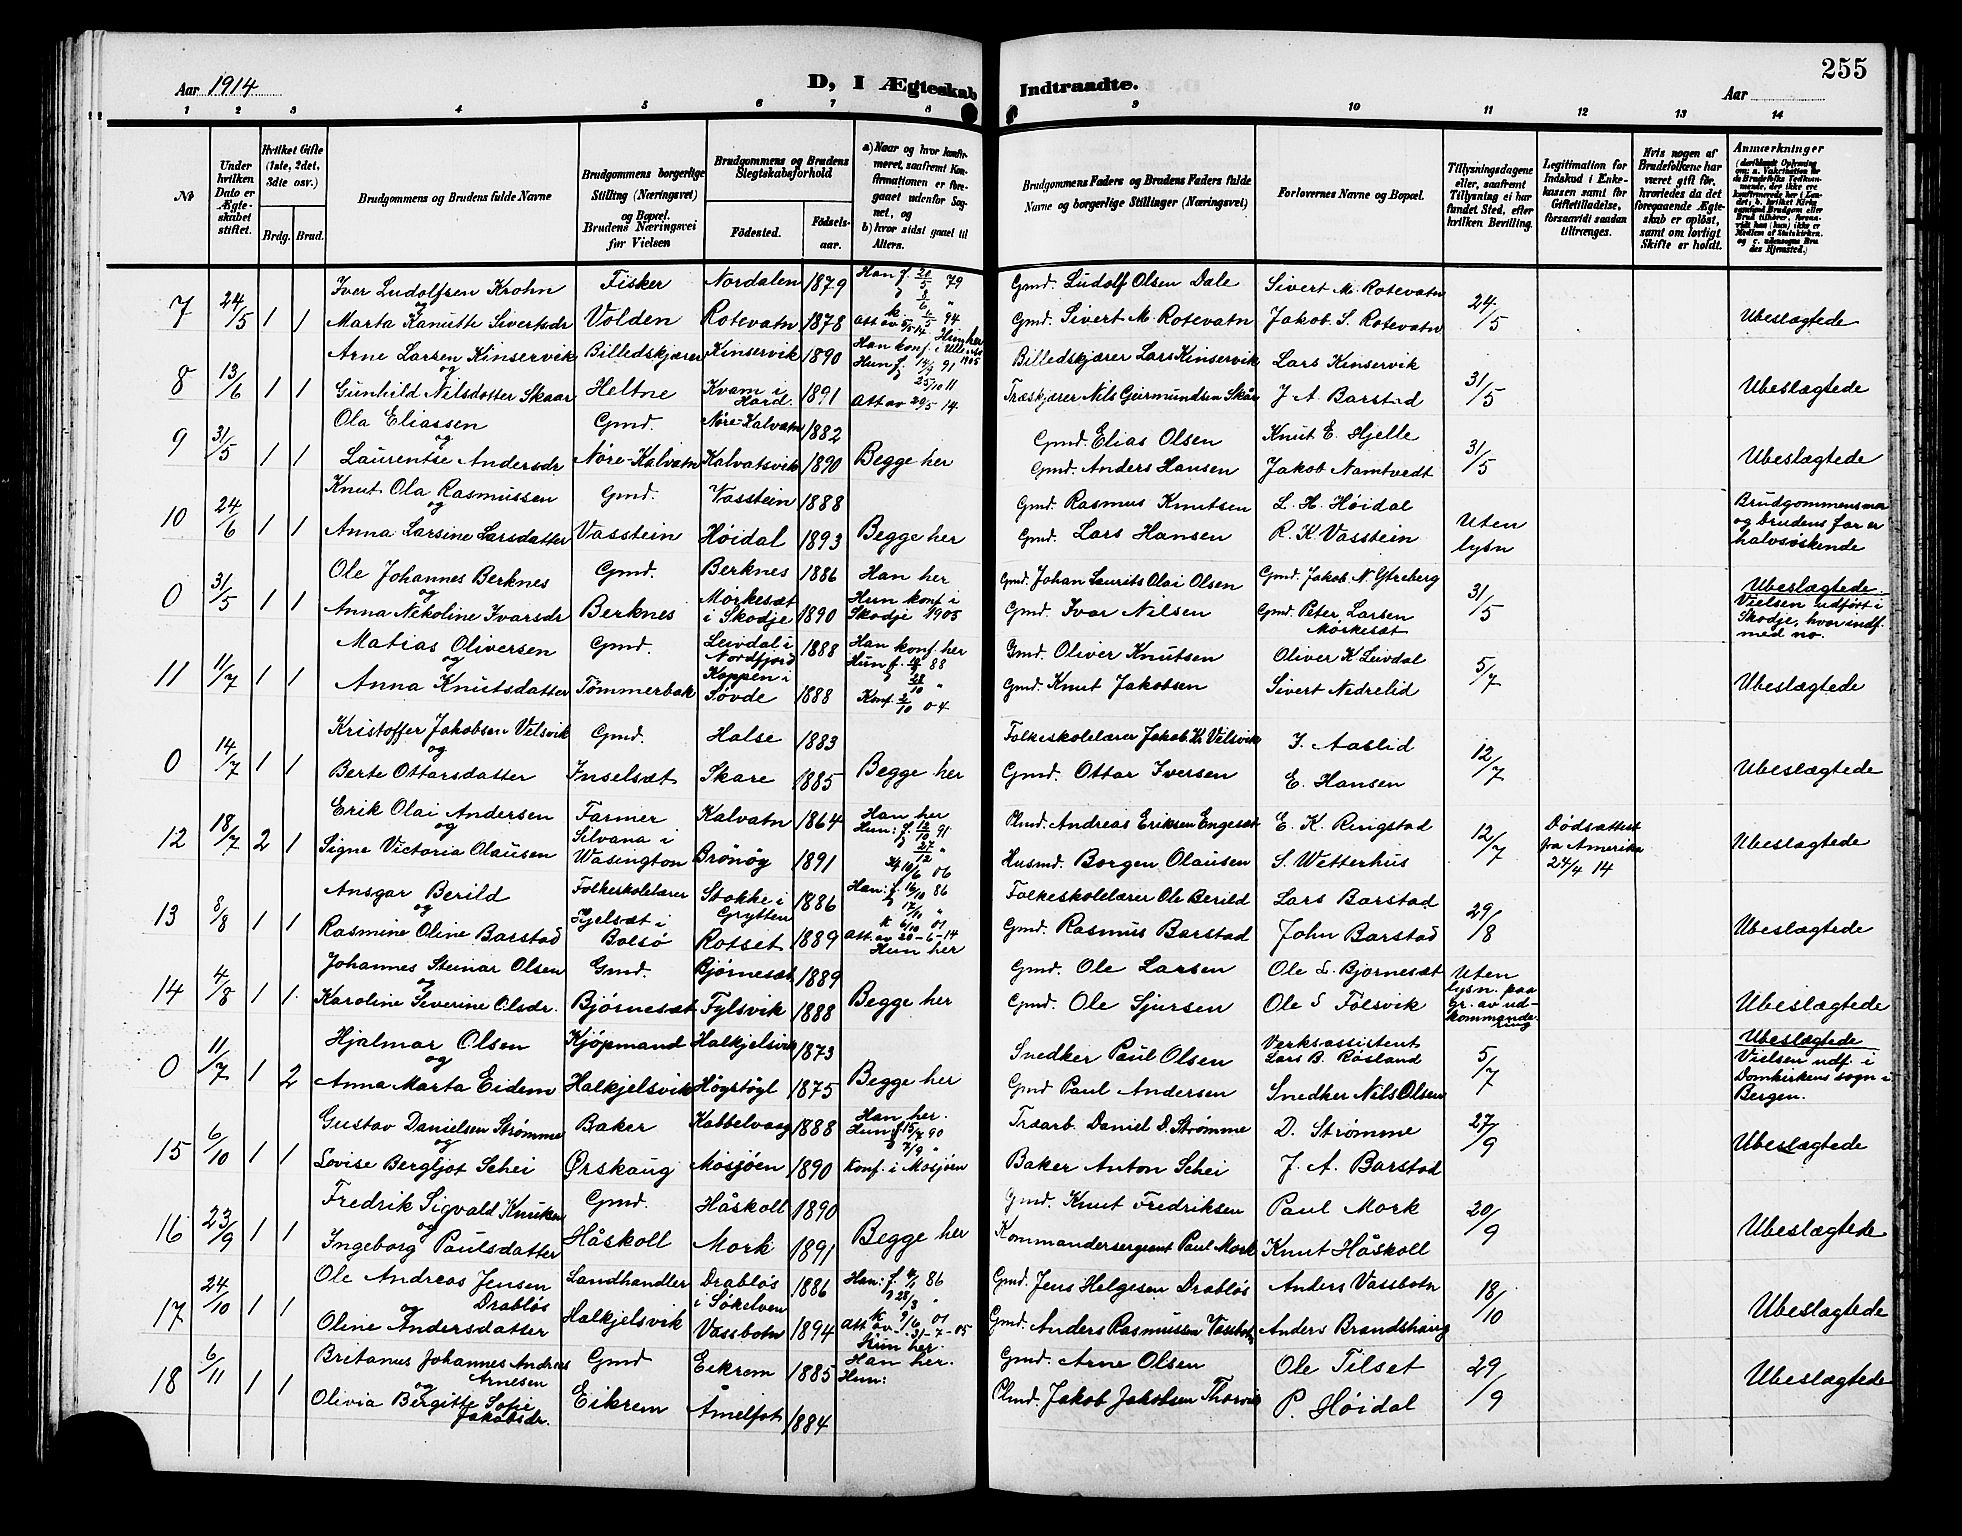 255
Aar 1914
D, I Ægteskab
Indtraadte.
Aar
1 2 3 4 5 6 7 8 9 10 11 12 13 14
No
Under hvilken Dato er Ægteskabet stiftet.
Hvilket Gifte (1ste, 2det, 3die osv.)
Brdg. Brud.
Brudgommens og Brudens fulde Navne
Brudgommens borgerlige Stilling (Næringsvei) og Bopæl. Brudens Næringsvei før Vielsen
Brudgommens og Brudens Slegtskabsforhold
Fødested. Fødselsaar.
a) Naar og hvor konfirmeret, saafremt Konfirmationen er foregaaet udenfor Sognet, og b) hvor sidst gaaet til Alters.
Brudgommens Faders og Brudens Faders fulde Navne og borgerlige Stillinger (Næringsvei)
Forlovernes Navne og Bopæl.
Tillysningsdagene eller, saafremt Tillysning ei har fundet Sted, efter hvilken Bevilling.
Legitimation for Indskud i Enkekassen samt for Giftetilladelse, forsaavidt saadan tiltrænges.
Hvis nogen af Brudefolkene har været gift før, hvorledes da det foregaaende Ægteskab er opløst, samt om lovligt Skifte er holdt.
Anmærkninger
7 24/5 1 1
Iver Ludolfsen Krohn Fisker Nordalen 1879 Han f. 20/5 79
og
Marta Kanutte Sivertsdr Volden Rotevatn 1878 att av 6/5 14 Hun her
Gmd. Ludolf Olsen Dale Sivert M. Rotevatn
Gmd. Sivert M. Rotevatn Jakob S. Rotevatn 24/5 Ubeslægtede
8 13/6 1 1
Arne Larsen Kinservik Billedskjærer Kinservik 1890 Han konf. i Ullensv 1905
og Hun f. 14/9 91
25/10 11
Gunhild Nilsdatter Skaar Heltne Kvam i Hard. 1891 Att av 29/5 14
Billedskjærer Lars Kinservik Lars Kinservik
Træskjærer Nils Geirmundsen Skår J. A. Barstad 31/5 Ubeslægtede
9 31/5 1 1
Ola Eliassen Gmd. Nøre-Kalvatn 1882
og
Laurentse Andersdr Nøre-Kalvatn Kalvatsvik 1890 Begge her
Gmd. Elias Olsen Knut E. Hjelle
Gmd. Anders Hansen Jakob Namtvedt 31/5 Ubeslægtede
10 24/6 1 1
Knut Ola Rasmussen Gmd. Vasstein 1888
og
Anna Larsine Larsdatter Vasstein Høidal 1893 Begge her
Gmd. Rasmus Knutsen L. H. Høidal
Gmd. Lars Hansen R. K. Vasstein Uten lysn
Brudgommens mor
og brudens far er
halvsøskende
0 31/5 1 1
Ole Johannes Berknes Gmd. Berknes 1886 Han her
og
Anna Nikoline Ivarsdr Berknes Morkesæt i Skodje 1890 Hun konf i Skodje 1905
Gmd. Johan Laurits Olai Olsen Gmd. Jakob N. Ytreberg
Gmd. Ivar Nilsen Gmd. Peter Larsen Morkesæt 31/5
Ubeslægtede.
Vielsen udført i
Skodje, hvor indf.
med no.
11 11/7 1 1
Matias Oliversen Gmd. Leivdal i Nordfjord 1888 Han konf. her
og Hun f. 88
28/10 "
Anna Knutsdatter Tømmerbak Koppen i Søvde 1888 Konf 2/10 04
Gmd. Oliver Knutsen Oliver K Leivdal
Gmd. Knut Jakobsen Sivert Nedrelid 5/7 Ubeslægtede
0 14/7 1 1
Kristoffer Jakobsen Velsvik Gmd. Halse 1883
og
Berte Ottarsdatter Inselsæt Skare 1885 Begge her
Folkeskolelærer Jakob K. Velsvik J. Aaslid
Gmd. Ottar Iversen E. Hansen 12/7 Ubeslægtede
12 18/7 2 1
Erik Olai Andersen Farmer Kalvatn 1864 Han her
og Silvana i Hun: f. 12/10 91
27/12 "
Signe Victoria Olausen Wasington Brönöy 1891 10/6 06
Plmd. Andreas Eriksen Engesæt E. K. Ringstad
Husmd. Borgen Olausen S. Wetterhus 12/7
Dødsattest
fra Amerika
24/4 14
Ubeslægtede
13 8/8 1 1
Ansgar Berild Folkeskolelærer Stokke i Grytten 1886 Han: f. 16/10 86
og Hjelsæt i 17/11 "
k 6/10 01
Rasmine Oline Barstad Bolsø Rotset 1889 Att. av 20-6-14
Hun her
Folkeskolelærer Ole Berild Lars Barstad
Gmd. Rasmus Barstad John Barstad 29/8 Ubeslægtede
14 4/8 1 1.
Johannes Steinar Olsen Gmd. Bjørnesæt 1889
og
Karoline Severine Olsdr. Bjørnesæt Fylsvik 1888 Begge her
Gmd. Ole Larsen Ole L. Bjørnesæt
Gmd. Ole Sjursen Ole S Folsvik
Uten
lysn. paa
gr. av ud-
kommande-
ring
Ubeslægtede
0 11/7 1 2
Hjalmar Olsen Kjøpmand Halkjelsvik 1873
og
Anna Marta Eidem Halkjelsvik Högstöyl 1875 Begge her
Snedker Paul Olsen Verksassistent Lars B. Røsland
Gmd Paul Andersen Snedker Nils Olsen 5/7
Ubeslægtede
Vielsen udf. i
Domkirkens sogn i
Bergen.
15 6/10 1 1
Gustav Danielsen Strømme Baker Kabbelvaag 1888 Han her.
og Hun f 15/7 90
7/9 "
Lovise Bergljot Schei Ørskaug Mosjøen 1890 Konf. i Mosjøen
Træarb. Daniel D. Strømme D. Strømme
Baker Anton Schei J. A. Barstad 27/9 Ubeslægtede
16 23/9 1 1
Fredrik Sigvald Knutsen Gmd. Håskoll 1890
og
Ingeborg Paulsdatter Håskoll Mork 1891 Begge her
Gmd. Knut Fredriksen Paul Mork
Kommandersergeant Paul Mork Knut Håskoll 20/9 Ubeslægtede
17 24/10 1 1
Ole Andreas Jensen Drabløs Landhandler Drabløs i Søkelven 1886 Han: f. 86
og 28/3 "
k 9/6 01
Oline Andersdatter Halkjelsvik Vassbotn 1894 Att av 31-7-05
Hun her.
Gmd. Jens Helgesen Drabløs Anders Vassbotn
Gmd. Anders Rasmussen Vassbotn Anders Brandshaug 18/10 Ubeslægtede
18 6/11 1 1
Britanus Johannes Andreas Arnesen Gmd Eikrem 1885 Han her.
og Hun:
Olivia Bergitte Sofie Jakobsdr. Eikrem Åmelfot 1884
Gmd. Arne Olsen Ole Tilset
Plmd. Jakob Jakobsen P. Høidal 29/9 Ubeslægtede